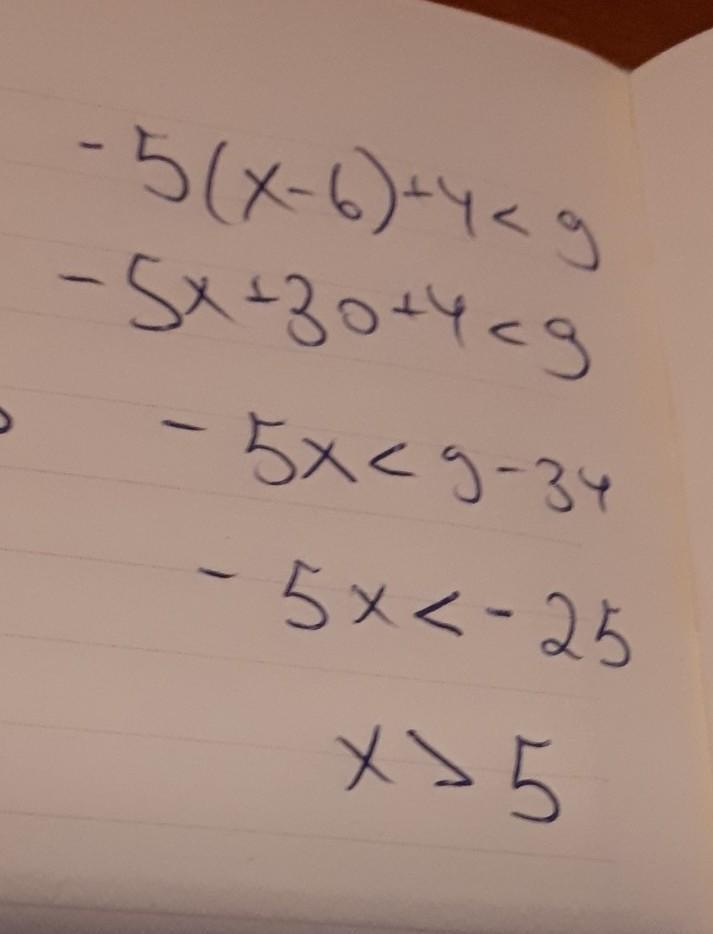 -5(x-6)+4<9
-5x+30+4<9
-5x<9-34
-5x<-25
x>5